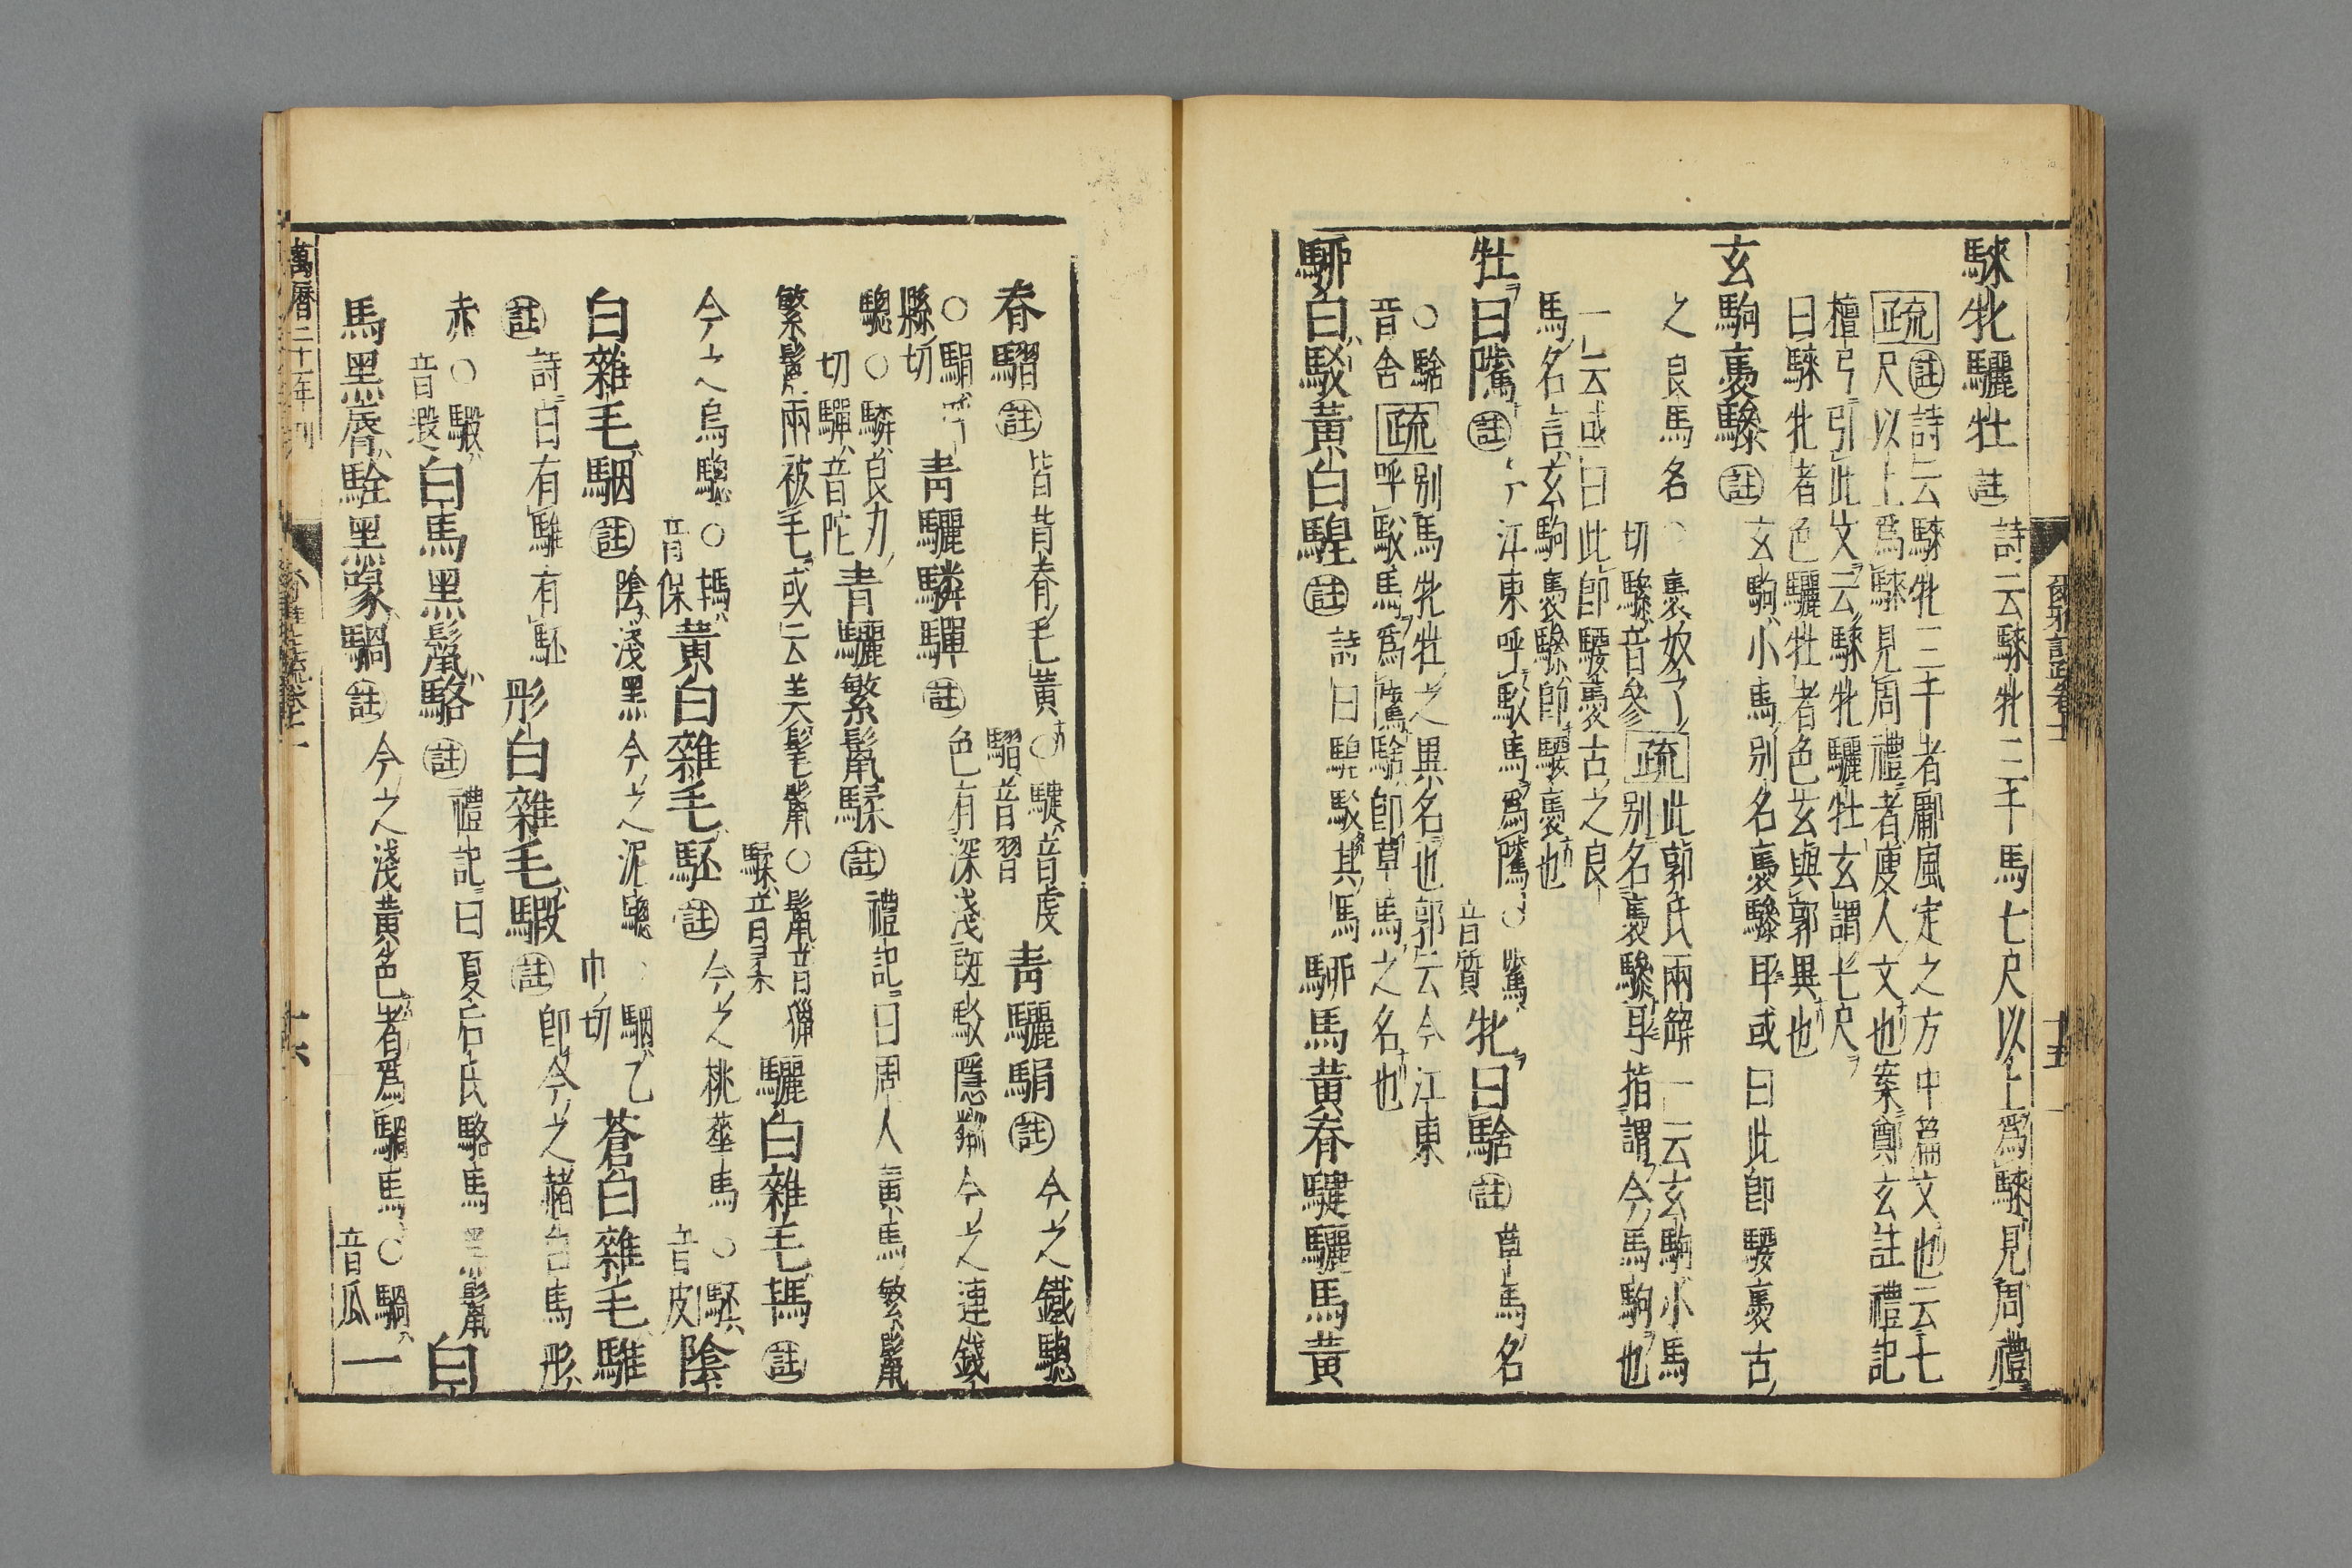 騋牝驪牡 註 詩云騋牝三千馬七尺以上爲騋見周禮
疏 註詩云騋牝三千者鄘風定之方中篇文也云七
尺以上爲騋見周禮者廋人文也案鄭玄註禮記
檀弓引此文云騋牝驪牡玄謂七尺
曰騋牝者色驪牡者色玄與郭異也
玄駒褭驂 註 玄駒小馬別名褭驂耳或曰此即騕褭古
之良馬名 ○褭奴了
切驂音參 疏 此郭氏兩解一云玄駒小馬
別名褭驂耳指謂今馬駒也
一云或曰此即騕褭古之良
馬名言玄駒褭驂即騕褭也
牡曰隲 註 今江東呼駁馬爲隲 ○隲
音質 牝曰騇 註 草馬名
○騇
音舍 疏 別馬牝牡之異名也郭云今江東
呼駁馬爲隲騇即草馬之名也
駵白駁黃白騜 註 詩曰騜駁其馬 駵馬黃脊騝驪馬黃
爾雅註疏卷十
十五
脊騽 註 皆背脊毛黃 ○騝音虔
騽音習 青驪駽 註 今之鐵驄
○駽呼
縣切 青驪驎驒 註 色有深淺斑駁隱粼今之連錢
驄 ○驎良刃
切驒音陀 青驪繁鬣騥 註 禮記曰周人黃馬繁鬣
繁鬣兩被毛或云美髦鬣 ○鬣音獵
騥音柔 驪白雜毛駂 註
今之烏驄 ○駂
音保 黃白雜毛駓 註 今之桃華馬 ○駓
音皮 陰
白雜毛駰 註 陰淺黑今之泥驄 ○駰乙
巾切 蒼白雜毛騅
註 詩曰有騅有駓 彤白雜毛騢 註 即今之赭白馬彤
赤 ○騢
音遐 白馬黑鬣駱 註 禮記曰夏后氏駱馬黑鬣 白
馬黑脣駩黑喙騧 註 今之淺黃色者爲騧馬 ○騧
音瓜 一
萬曆二十一年刊
十六